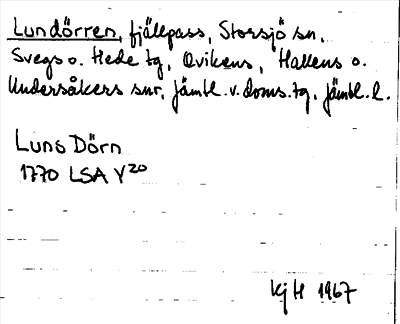 Lundörren, fjällpass, Storsjö sn,
Svegs o. Hede tg, Ovikens, Hallens o.
Undersåkers snr, Jämtl. v. doms. tg, Jämtl. l.
Luns Dörn
1770 LSA Y20
KjH 1967